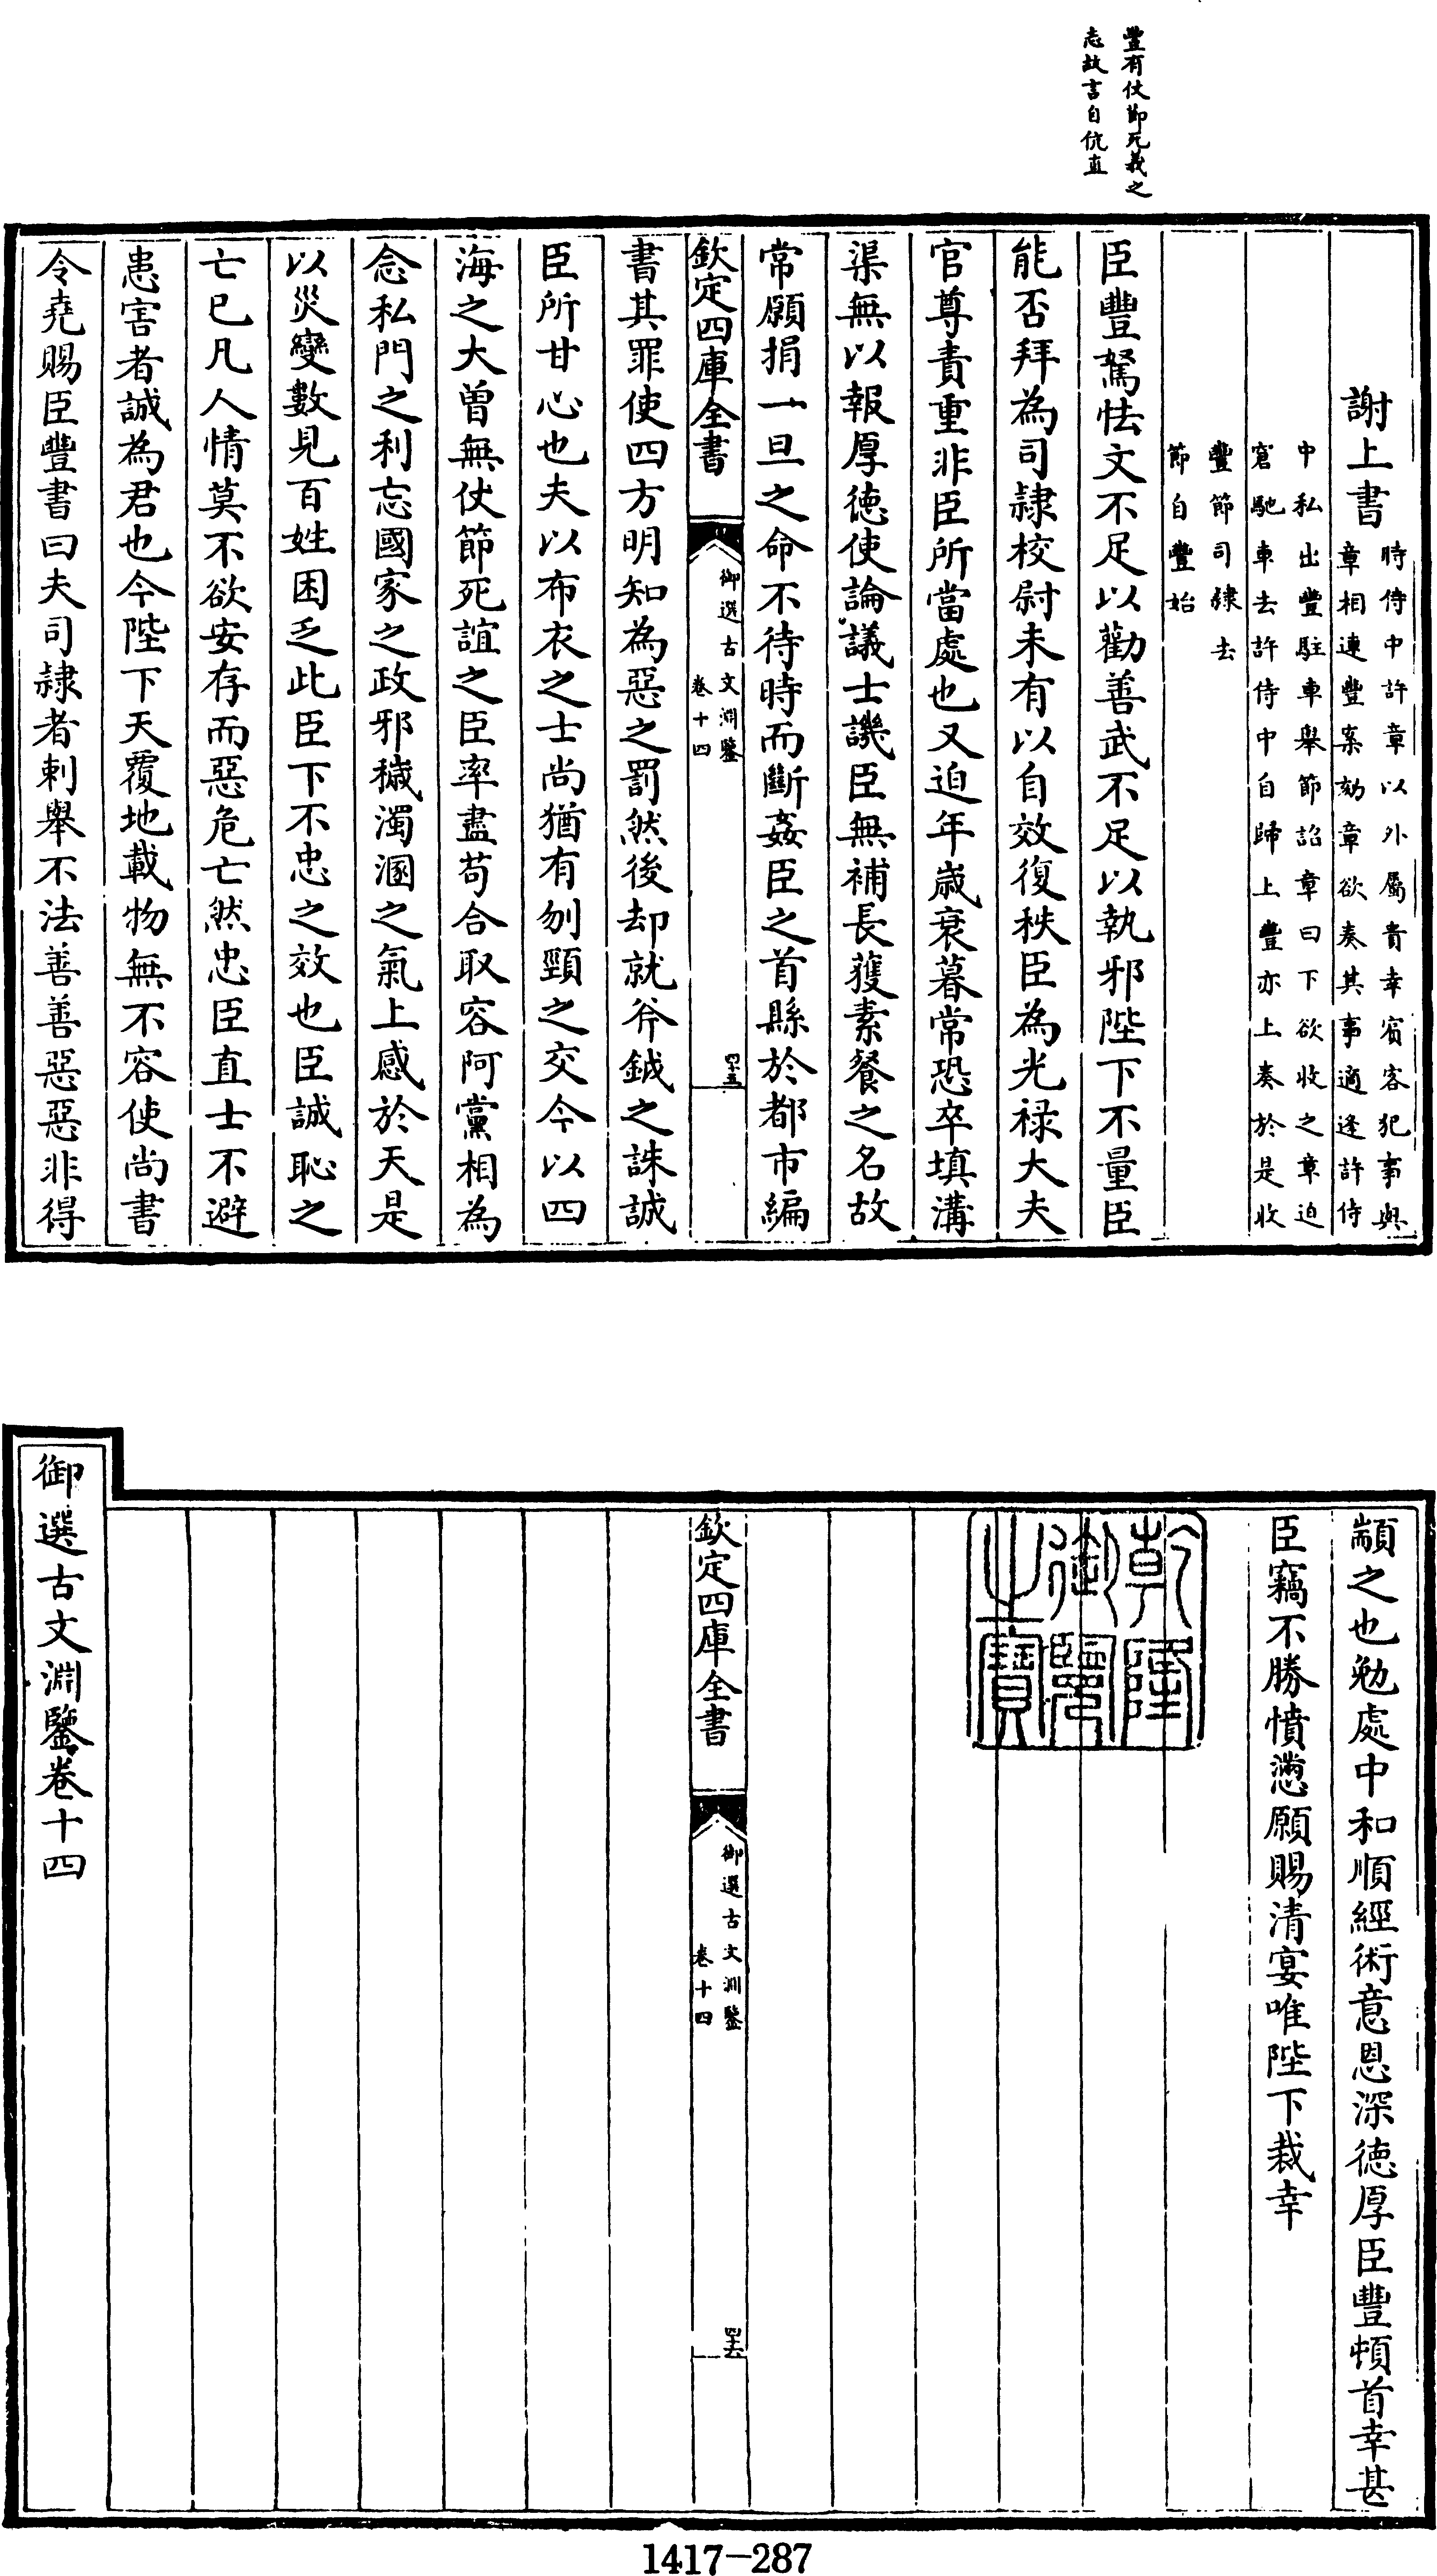 豐有仗節死義之
志故言自伉直
謝上書
時侍中許章以外屬貴幸賓客犯事與
章相連豐案劾章欲奏其事適逢許侍
中私出豐駐車舉節詔章曰下欲收之章迫
窘馳車去許侍中自歸上豐亦上奏於是收
豐節司隸去
節自豐始
臣豐駑怯文不足以勸善武不足以執邪陛下不量臣
能否拜為司隸校尉未有以自效復秩臣為光禄大夫
官尊責重非臣所當處也又迫年歲衰暮常恐卒填溝
渠無以報厚德使論議士譏臣無補長蒦素餐之名故
常願捐一旦之命不待時而斷姦臣之首縣於都市編
欽定四庫全書
御選古文淵鑒
卷十四
四十五
書其罪使四方明知為惡之罰然後却就斧鉞之誅誠
臣所甘心也夫以布衣之士尚猶有刎頸之交今以四
海之大曾無仗節死誼之臣率盡苟合取容阿黨相為
念私門之利忘國家之政邪穢濁溷之氣上感於天是
以災變數見百姓困乏此臣下不忠之效也臣誠恥之
亡已凡人情莫不欲安存而惡危亡然忠臣直士不避
患害者誠為君也今陛下天覆地載物無不容使尚書
令堯賜臣豐書曰夫司隸者刺舉不法善善惡惡非得
顓之也勉處中和順經術意恩深德厚臣豐頓首幸甚
臣竊不勝憤懣願賜清宴唯陛下裁幸
乾隆
御覽
之寶
欽定四庫全書
御選古文淵鑒
卷十四
四十六
御選古文淵鑒卷十四
1417-287